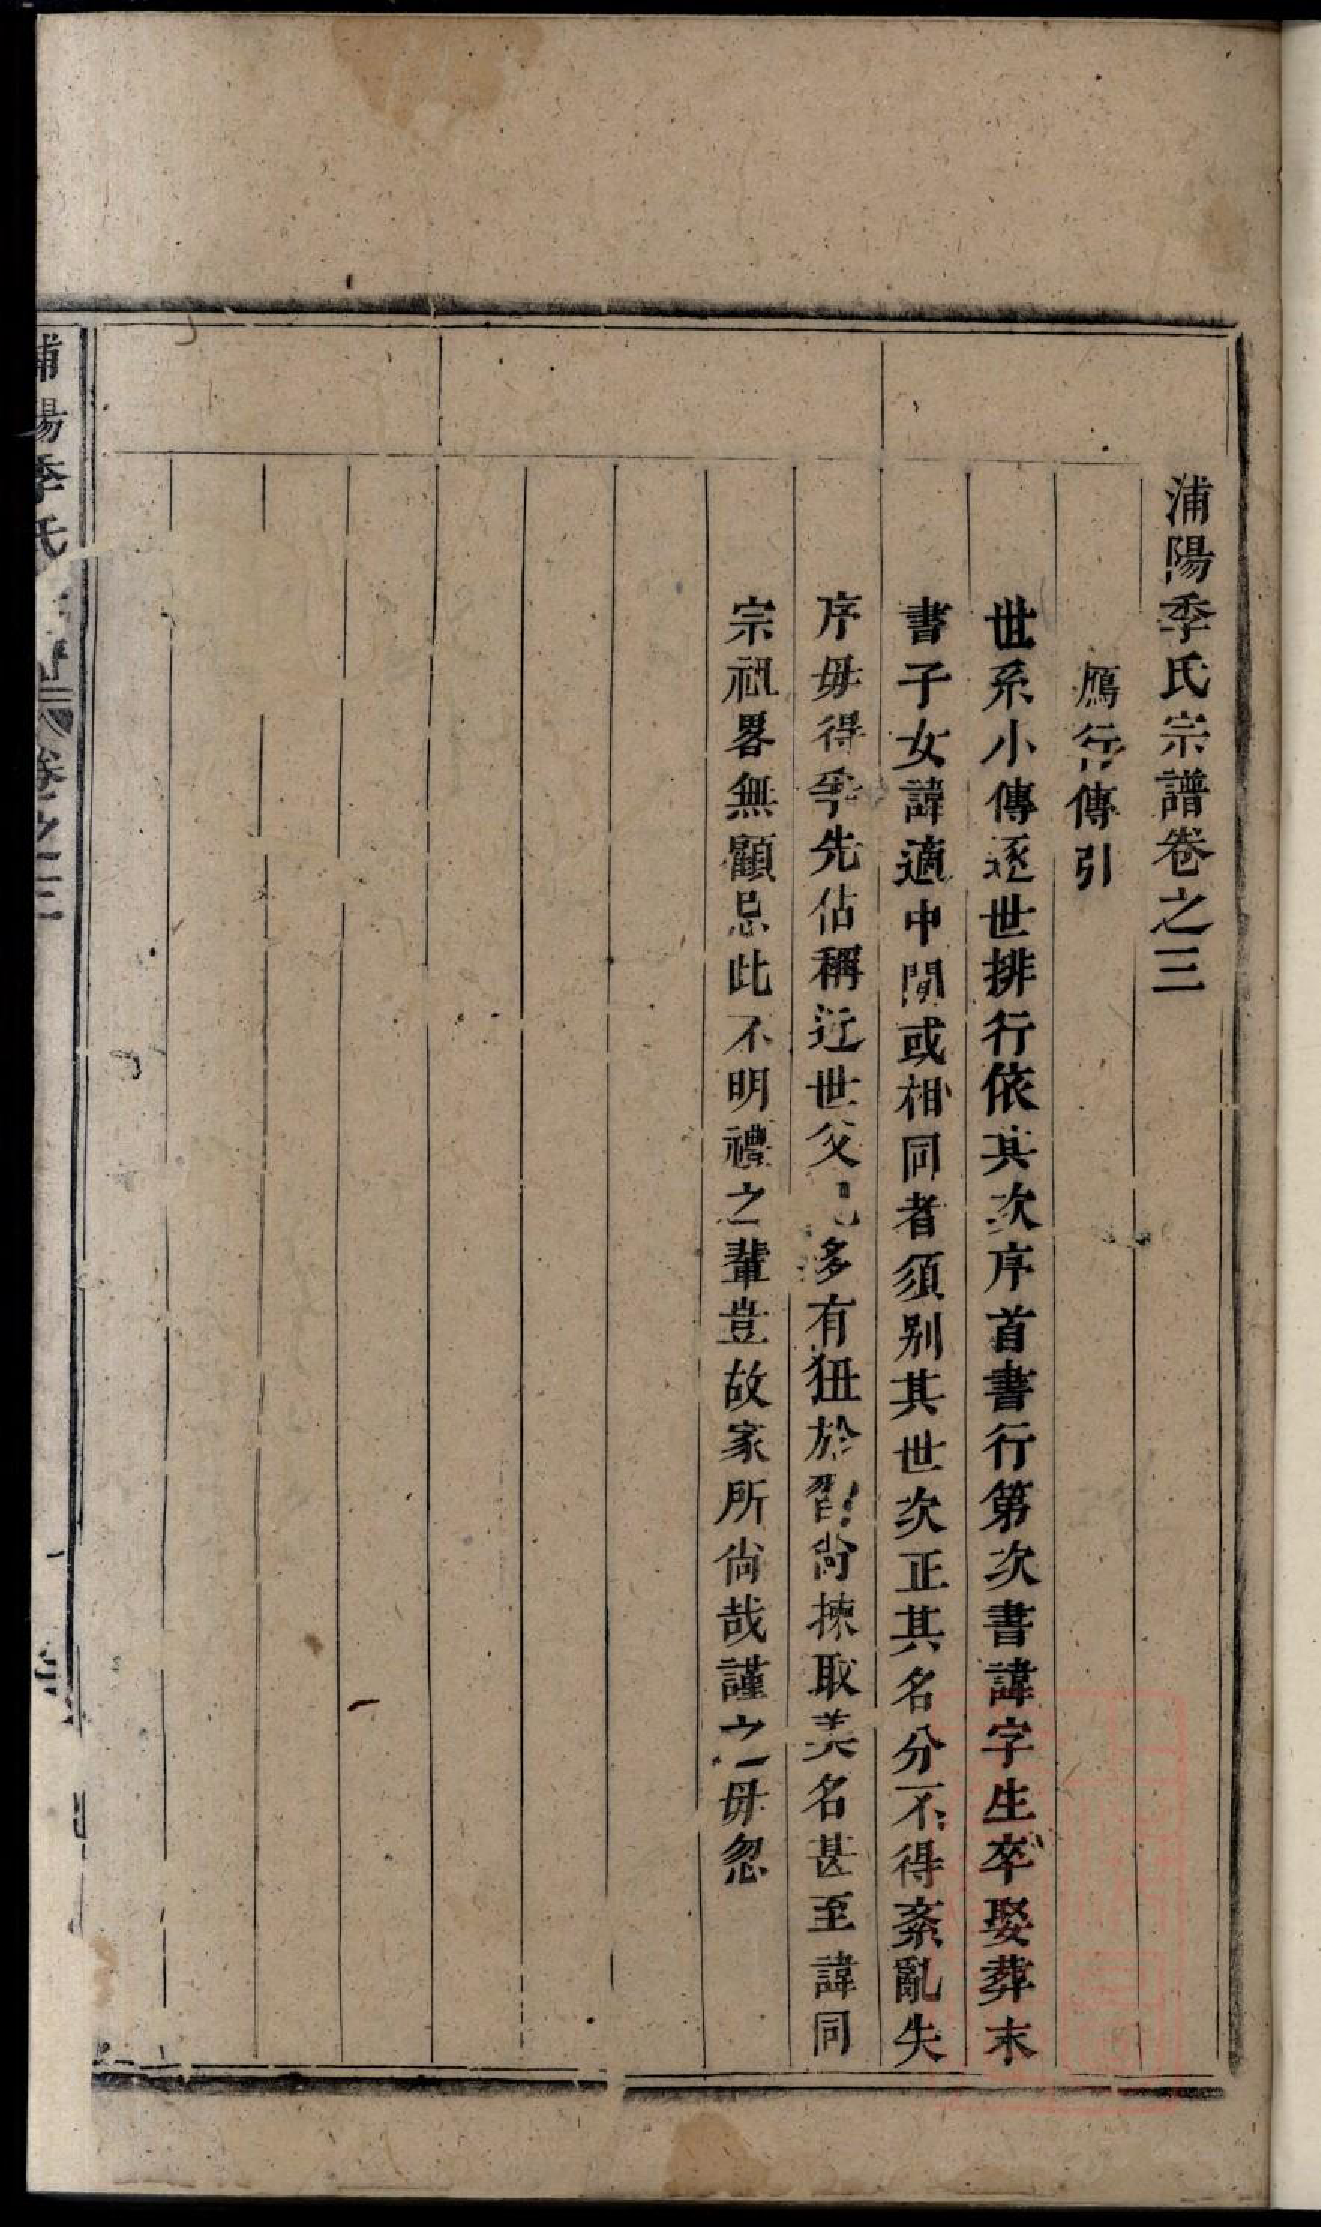 浦陽季氏宗譜卷之三
鴈行傳引
世系小傳逐世排行依其次序首書行第次書諱字生卒娶葬末
書子女諱適中間或相同者須別其世次正其名分不得紊亂失
序毋得爭先佔稱近世父兄多有狃於習尚揀取美名甚至諱同
宗祖畧無顧忌此不明禮之輩豈故家所尚哉謹之毋忽
浦陽季氏 卷之三